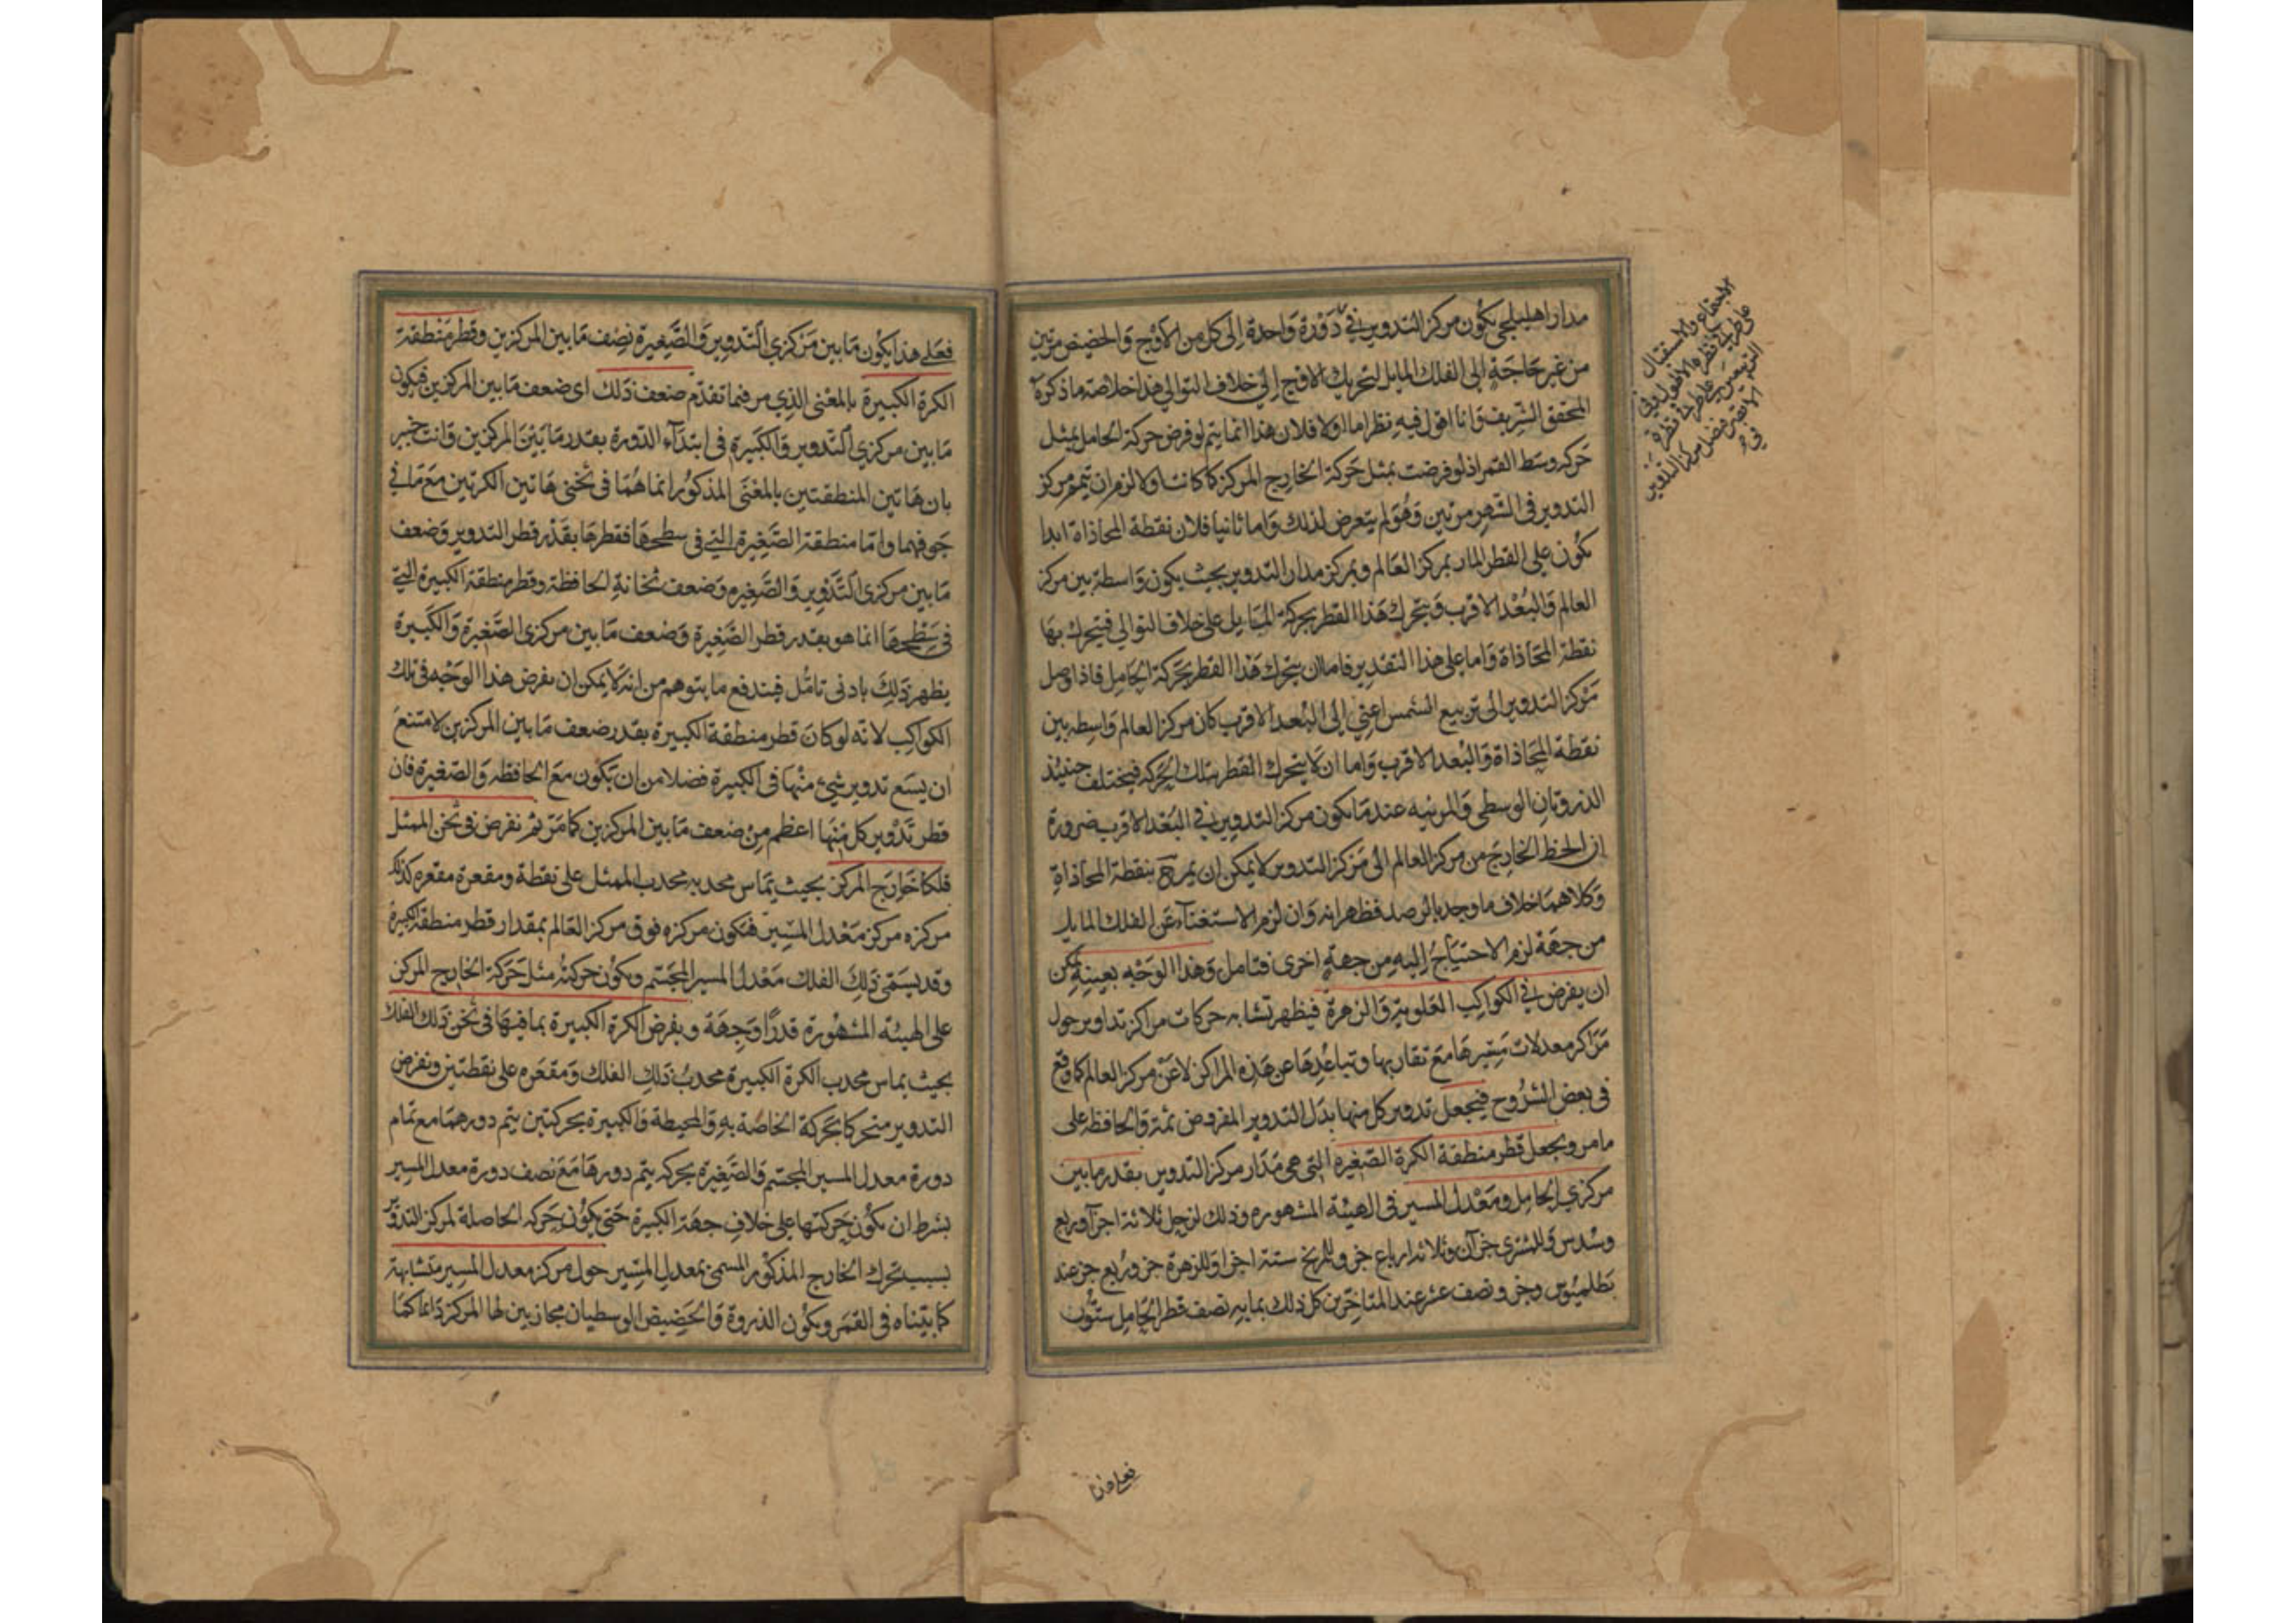 مدار اهليلجي يكون مركز التدوير في دورة واحدة إلى كل من الأوج والحضيض مرتين
من غير حاجة الى الفلك المايل لتحريك الاوج إلى خلاف التوالي هذا خلاصة ما ذكره
المحقق الشريف وانا اقول فيه نظر اما اولا فلان هذا انما يتم لو فرض حركة الحامل بمثل
حركه وسط القمر اذ لو فرضت بمثل حركة الخارج المركز كما كانت اولا لزم ان يتمم مركز
التدوير في الشهر مرتين وهو لم يتعرض لذلك واما ثانيا فلان نقطة المحاذاة ابدا
تكون على القطر المار بمركز العالم وبمركز مدار التدوير بحيث يكون واسطة بين مركز
العالم والبعد الاقرب ويتحرك هذا القطر بحركة المايل على خلاف التوالي فيتحرك بها
نقطة المحاذاة واما على هذا التقدير فاما ان يتحرك هذا القطر بحركة الحامل فاذا وصل
مركز التدوير الى تربيع الشمس اعني إلى البعد الاقرب كان مركز العالم واسطه بين
نقطة المحاذاة والبعد الاقرب واما ان لا يتحرك القطر بتلك الحركه فيختلف حينئذ
الذروتان الوسطى والمرئيه عندما يكون مركز التدوير في البعد الاقرب ضرورة
ان الخط الخارج من مركز العالم الى مركز التدوير لا يمكن ان يمر ح بنقطة المحاذاة
وكلاهما خلاف ما وجد بالرصد فظهر انه وان لزم الاستغناء عن الفلك المايل
من جهة لزم الاحتياج إليه من جهة اخرى فتامل وهذا الوجه بعينه يمكن
ان يفرض في الكواكب العلوية والزهرة فيظهر تشابه حركات مراكز تداوير حول
مراكز معدلات مسيرها مع تقاربها وتباعدها عن هذه المراكز لا عن مركز العالم كما وقع
في بعض الشروح فيجعل تدوير كل منها بدل التدوير المفروض ثمة والحافظه على
ما مر ويجعل قطر منطقة الكرة الصغيره التي هي مدار مركز التدوير بقدر ما بين
مركزي الحامل ومعدل المسير في الهيئة المشهوره وذلك لزحل ثلاثة اجزآء وربع
وسدس وللمشتري جزآن وثلاثة ارباع جزء وللمريخ ستة اجزاء وللزهرة جزء وربع جزء عند
بطلميوس وجزء ونصف عشر عند المتاخرين كل ذلك بما به نصف قطر الحامل ستون
الاجتماع والاستقبال
فعلى هذا
فعلى هذا يكون ما بين مركزي التدوير والصغيرة نصف ما بين المركزين وقطر منطقة
الكرة الكبيرة بالمعنى الذي مر فيما تقدم ضعف ذلك اى ضعف ما بين المركزين فيكون
ما بين مركزي التدوير والكبيرة في ابتدآء الدورة بقدر ما بين المركزين وانت خبير
بان هاتين المنطقتين بالمعنى المذكور انما هما في ثخني هاتين الكرتين مع ما في
جوفهما واما منطقة الصغيرة التي في سطحها فقطرها بقدر قطر التدوير وضعف
ما بين مركزي التدوير والصغيره وضعف ثخانة الحافظة وقطر منطقة الكبيرة التي
في سطحها انما هو بقدر قطر الصغيرة وضعف ما بين مركزي الصغيرة والكبيرة
يظهر ذلك بادنى تامل فيندفع ما يتوهم من انه لا يمكن ان يفرض هذا الوجه في تلك
الكواكب لانه لو كان قطر منطقة الكبيرة بقدر ضعف ما بين المركزين لامتنع
ان يسع تدوير شيئ منها في الكبيرة فضلا من ان تكون مع الحافظه والصغيرة فان
قطر تدوير كل منها اعظم من ضعف ما بين المركزين كما مر ثم نفرض في ثخن الممثل
فلكا خارج المركز بحيث يماس محدبه محدب الممثل على نقطة ومقعره مقعره كذلك
مركزه مركز معدل المسير فيكون مركزه فوق مركز العالم بمقدار قطر منطقة الكبيرة
وقد يسمى ذلك الفلك معدل المسير المجسم ويكون حركته مثل حركة الخارج المركز
على الهيئه المشهورة قدرا وجهة ويفرض الكرة الكبيرة بما فيها في ثخن ذلك الفلك
بحيث يماس محدب الكرة الكبيرة محدب ذلك الفلك ومقعره على نقطتين ونفرض
التدوير متحركا بحركة الخاصة به والمحيطة والكبيرة بحركتين يتم دورهما مع تمام
دورة معدل المسير المجسم والصغيرة بحركه يتم دورها مع نصف دورة معدل المسير
بشرط ان تكون حركتها على خلاف جهة الكبيرة حتى يكون حركه الحاصلة لمركز التدوير
بسبب تحرك الخارج المذكور المسمى بمعدل المسير حول مركز معدل المسير متشابهة
كما بيناه في القمر ويكون الذروة والحضيض الوسطيان محاذيين لها المركز دائما كما